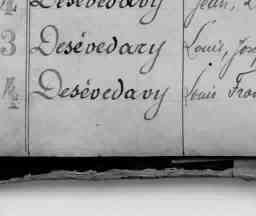 Desévedavy Jean,
3 Desévedary Louis, Jos
Desévedavy Louis Fran